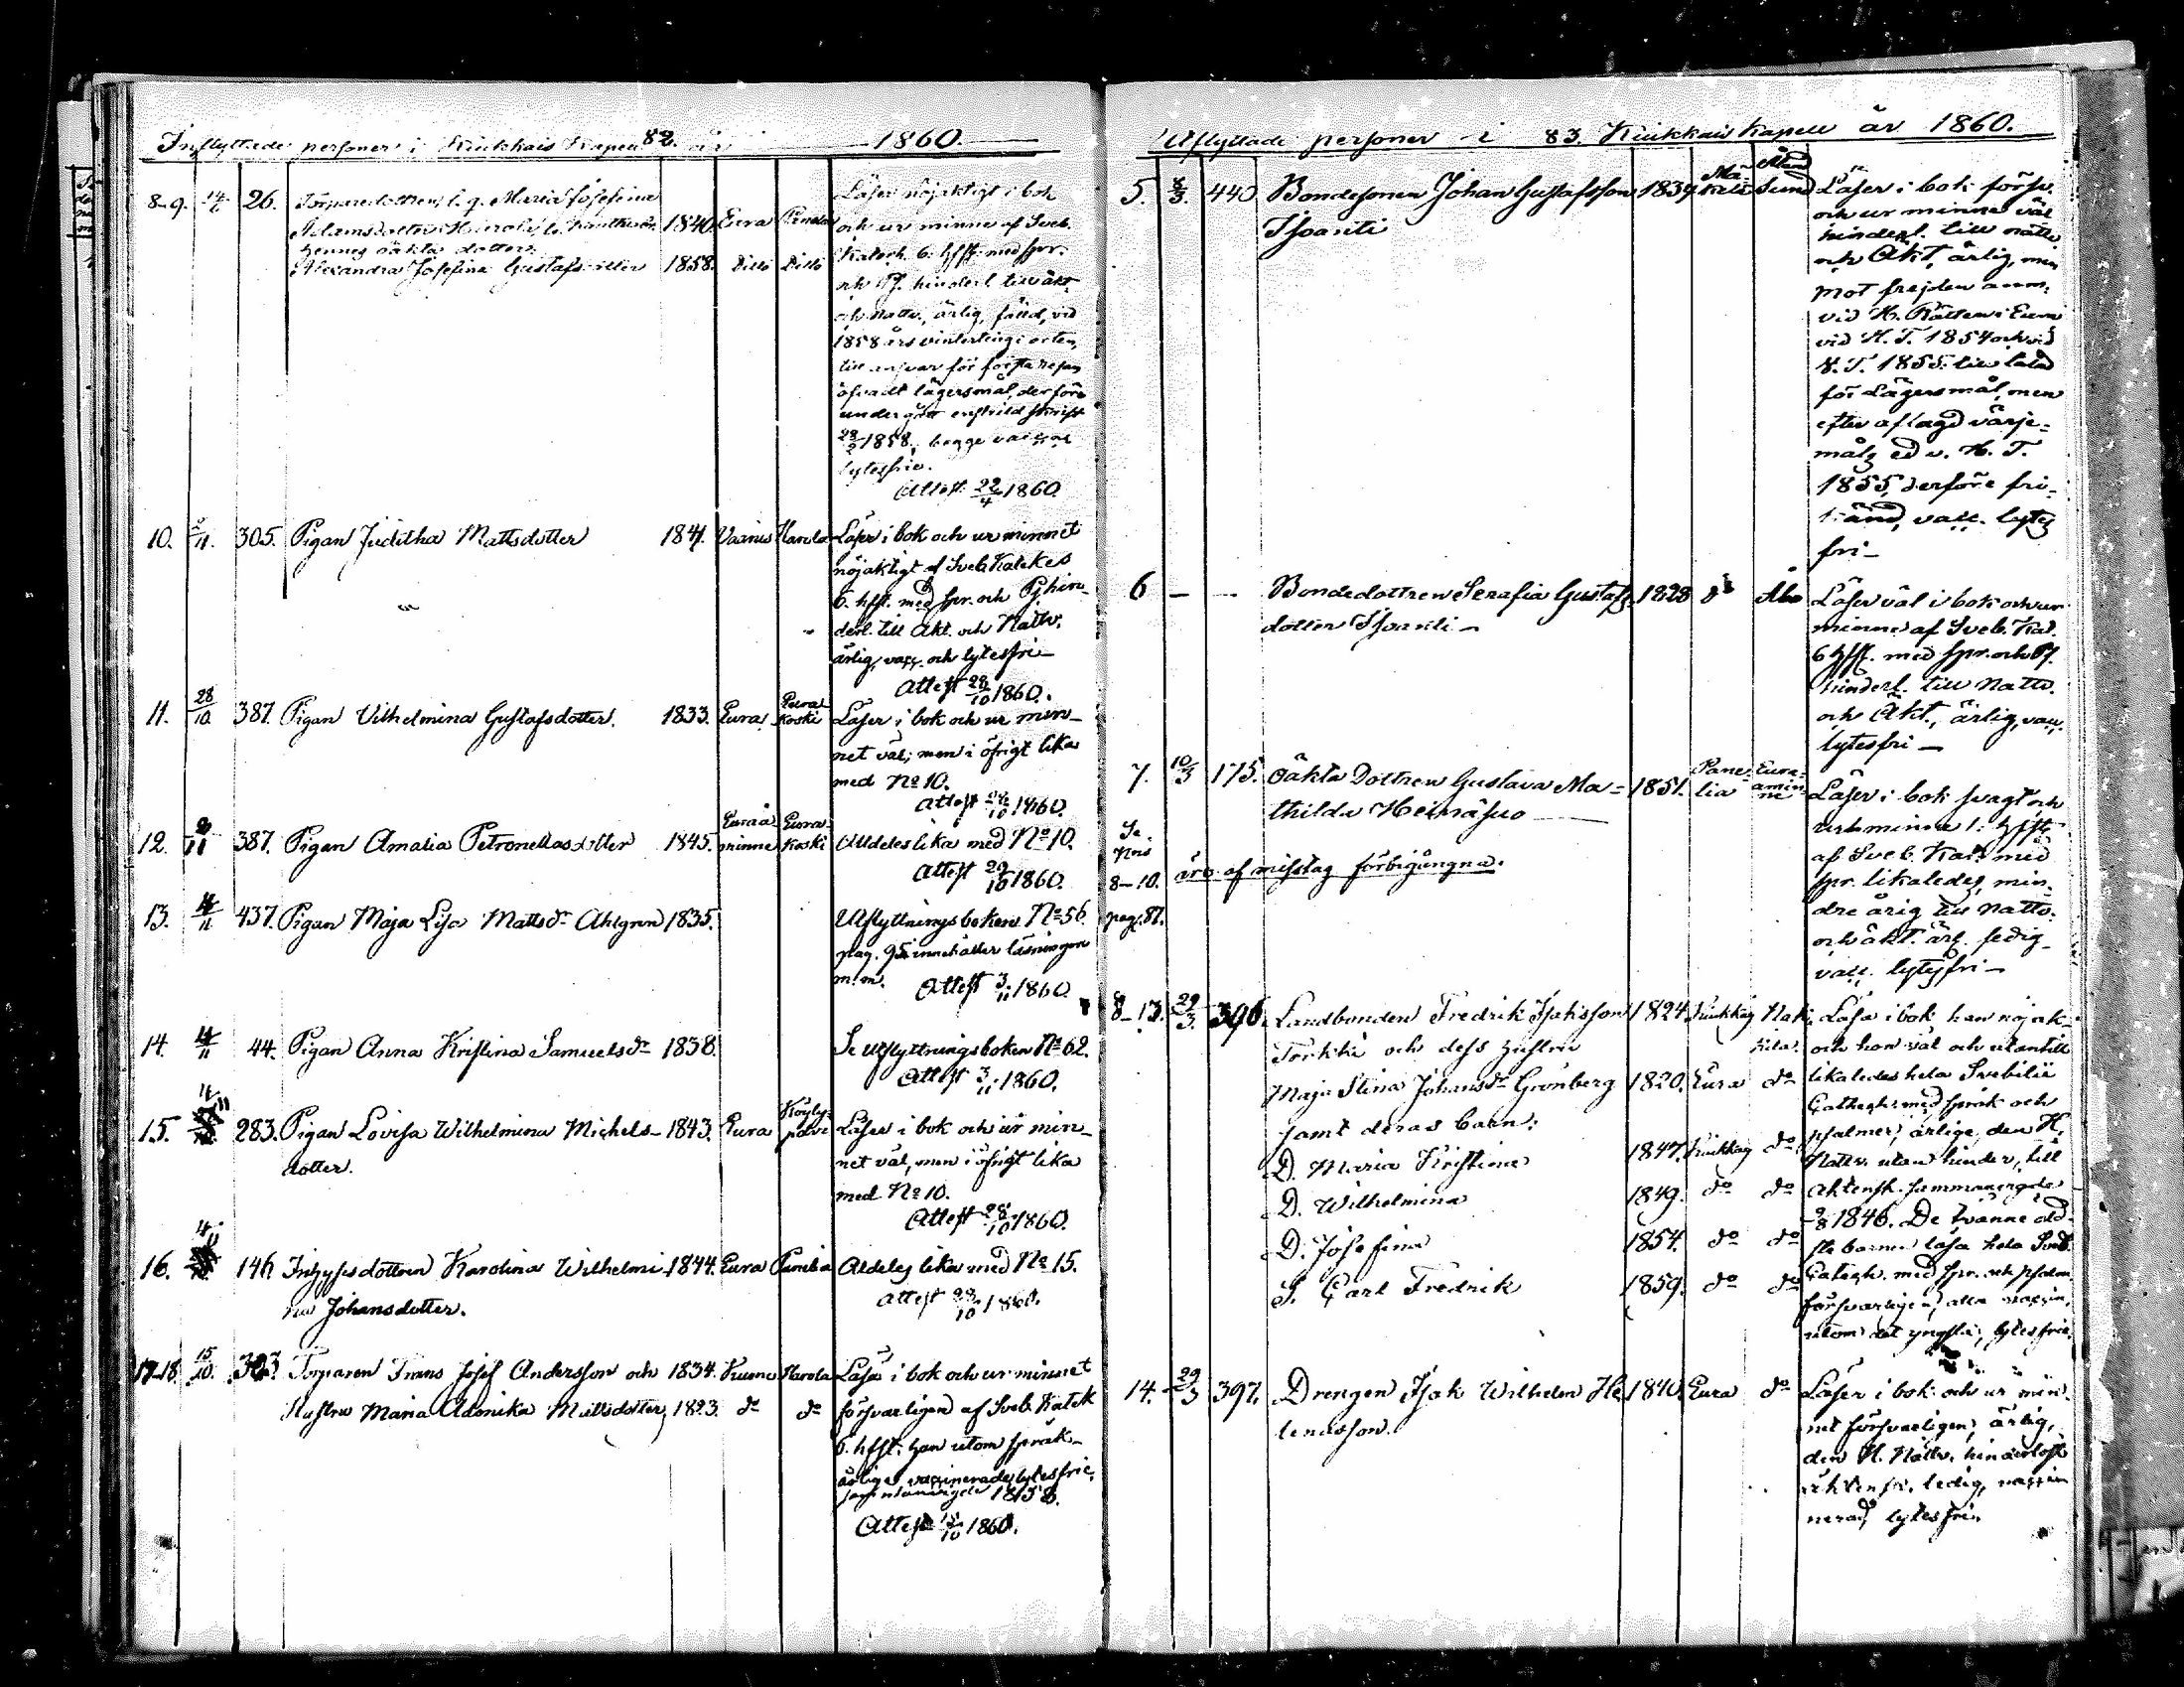 Inflyttade personer i Kiukkais Kapell 82. år 1860.
8-9. 26. Torparedottren, l. q. Maria Josefina
1840. Eura
hennes oäkta dotter
Alexandra Josefina Gustafsdotter 1858. Ditto Ditto
Läser nöjaktigt i bok
och ur minne af Sveb.
Katech. 6. hfft. med spr.
och Pf. hinderl. till äkt.
och nattv., ärlig, fälld, vid
1858 års vinterting i orten,
till ansvar för första resan
öfvadt lägersmål, derföre
undergått enskild skrift
1858, begge
lytesfrie.
Attest 22/4 1860.
10. 305. Pigan Juditha Mattsdotter 1841. Harola
Läser i bok och ur minnet
nöjaktigt af Sveb. Katekes
6. hfft. med spr. och Pf. hin-
derl. till äkt. och Nattv.
ärlig, vacc. och lytesfri
Attest 28/10 1860.
11. 28/10 387. Pigan Vilhelmina Gustafsdotter. 1833. Eura Eura-
koski
Läser i bok och ur min-
net väl; men i öfrigt lika
med No 10.
Attest 28/10 1860.
12. 387. Pigan Amalia Petronellasdotter 1845. Euraå
minne Eura-
koski Alldeles lika med No 10.
Attest 29/10 1860.
13. 4/11 437. Pigan Maja Lisa Mattsdr Ahlgren 1835.
Utflyttningsboken No 56
pag. 95 innehåller läsningen
m.m.
Attest 3/11 1860.
14. 4/11 44. Pigan Anna Kristina Samuelsdr 1838.
Se utflyttningsboken No 62.
Attest 3/11 1860.
15. 283. Pigan Lovisa Wilhelmina Michels- 1843. Eura Köyly-
dotter.
Läser i bok och ur min-
net väl, men i öfrigt lika
med No 10.
Attest 28/10 1860.
16. 146 Inhysesdottren Karolina Wilhelmi- 1844. Eura Panelia
na Johansdotter.
Aldeles lika med No 15.
Attest 28/10 1860.
17-18 15/10 303 Torparen Frans Josef Andersson och 1834. Harola
Hustru Maria Mattsdotter, 1823. do do
Läsa i bok och ur minnet
försvarligen af Sveb. Katek
6. hfft. han utom språk-
ärlige, vaccinerade, lytesfrie,
sammanvigde 1858.
Attest 1860.
Utflyttade personer i 83. Kiukkais Kapell år 1860.
5. 440 Bondesonen Johan Gustafsson 1839 Åland
Sund
Läser i bok försv.
och ur minne väl
hinderl. till nattv.
och Äkt, ärlig, men
mot frejden anm.
vid H. Rätten i Eura
vid H. T. 1854 och vid
V. T. 1855 till talad
för Lägersmål, men
efter aflagd värje-
måls ed v. H. T.
1855, derföre fri-
känd, vacc. lytes
fri
6 — — Bondedottren Serafia Gustafs- 1828 do Åbo
dotter
Läser väl i bok och ur
minne af Sveb. Kat.
6 hfft. med spr. och Pf.
hinderl. till nattv.
och Äkt., ärlig, vacc.
lytesfri
7. 10/3 175. Oäkta Dottren Gustava Ma- 1851. Pane-
lia Eura-
åmin-
ne
thilda
Läser i bok svagt och
ur minne 1. hfft
af Sveb. Kat. med
spr. likaledes, min-
dre årig till nattv.
och äkt. ärl. ledig
vacc. lytesfri
Se
Nris
8-10. äro af misstag förbigångna.
pag. 87.
8-13. 29/3. 396. Landbonden Fredrik Isaksson 1824. Kiukkais
Torkki och dess hustru
Maja Stina Johansdr Grönberg 1820. Eura do
samt deras barn:
D. Maria Kristina 1847. Kiukkais do
D. Wilhelmina 1849. do do
D. Josefina 1854. do do
S. Carl Fredrik 1859. do do
Läsa i bok han nöjak-
och hon väl och utantill
likaledes hela Svebilii
Catheches med språk och
psalmer, ärlige, den H.
Nattv. utan hinder, till
äktensk. sammanvigde
1846. De tvänne äld-
sta barnen läsa hela Sveb.
Catech. med spr. och psalm.
försvarligen, alla vaccin.
utom det yngsta, lytesfrie,
14. 29/3 397. Drengen Isak Wilhelm He- 1840. Eura do
lenasson.
Läser i bok och ur min-
net försvarligen, ärlig,
den H. Nattv. hinderlöst
äktensk. ledig, vaccin
nerad, lytesfri.